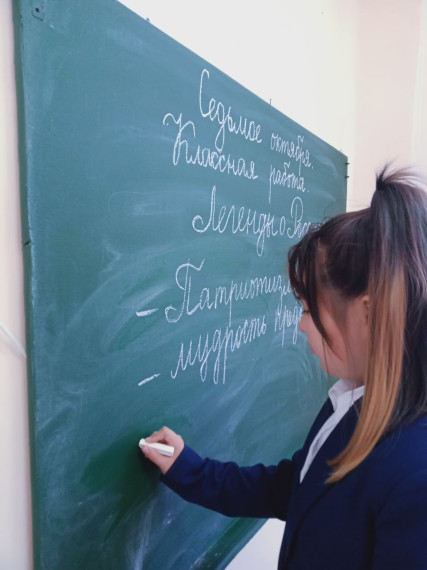 Седьмое октября.
Классная работа.
Легенды о
- Патриотизм
- мудрость